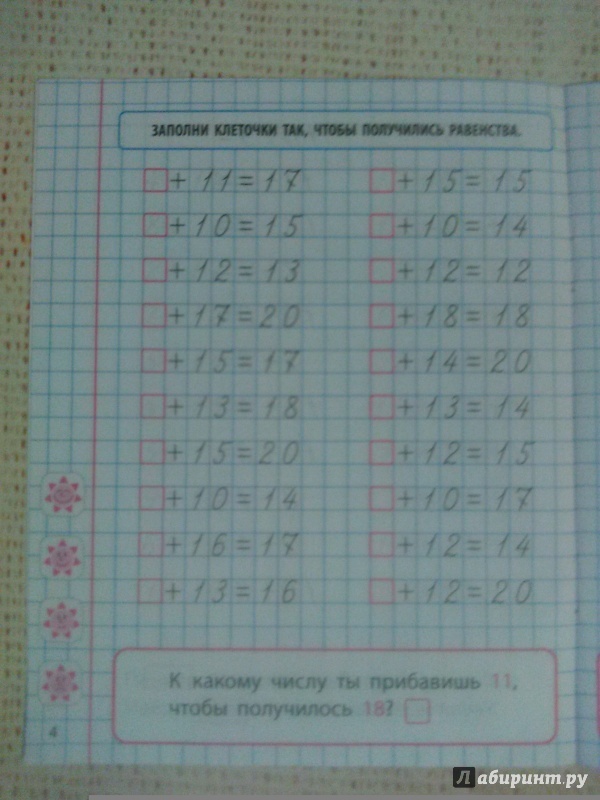 ЗАПОЛНИ КЛЕТОЧКИ ТАК, ЧТОБЫ ПОЛУЧИЛИСЬ РАВЕНСТВА.
□ + 11 = 17 □ + 15 = 15
□ + 10 = 15 □ + 10 = 14
□ + 12 = 13 □ + 12 = 12
□ + 17 = 20 □ + 18 = 18
□ + 15 = 17 □ + 14 = 20
□ + 13 = 18 □ + 13 = 14
□ + 15 = 20 □ + 12 = 15
□ + 10 = 14 □ + 10 = 17
□ + 16 = 17 □ + 12 = 14
□ + 13 = 16 □ + 12 = 20
К какому числу ты прибавишь 11,
чтобы получилось 18? □
4
Лабиринт.ру